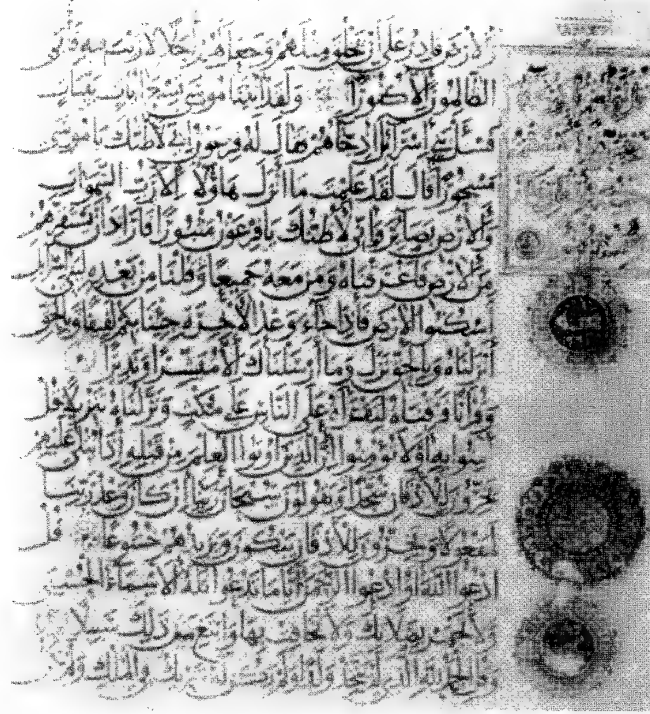 وَالْأَرْضَ قَادِرٌ عَلَى أَنْ يَخْلُقَ مِثْلَهُمْ وَجَعَلَ لَهُمْ أَجَلًا لَا رَيْبَ فِيهِ فَأَبَى
الظَّالِمُونَ إِلَّا كُفُورًا وَلَقَدْ آتَيْنَا مُوسَى تِسْعَ آيَاتٍ بَيِّنَاتٍ
فَسْئَلْ بَنِي إِسْرَائِلَ إِذْ جَاءَهُمْ فَقَالَ لَهُ فِرْعَوْنُ إِنِّي لَأَظُنُّكَ يَا مُوسَى
مَسْحُورًا قَالَ لَقَدْ عَلِمْتَ مَا أَنْزَلَ هَؤُلَاءِ إِلَّا رَبُّ السَّمَوَاتِ
وَالْأَرْضِ بَصَائِرَ وَإِنِّي لَأَظُنُّكَ يَا فِرْعَوْنُ مَثْبُورًا فَأَرَادَ أَنْ يَسْتَفِزَّهُمْ
مِنَ الْأَرْضِ فَأَغْرَقْنَاهُ وَمَنْ مَعَهُ جَمِيعًا وَقُلْنَا مِنْ بَعْدِهِ لِبَنِي إِسْرَائِلَ
اسْكُنُوا الْأَرْضَ فَإِذَا جَاءَ وَعْدُ الْآخِرَةِ جِئْنَا بِكُمْ لَفِيفًا وَبِالْحَقِّ
أَنْزَلْنَاهُ وَبِالْحَقِّ نَزَلَ وَمَا أَرْسَلْنَاكَ إِلَّا مُبَشِّرًا وَنَذِيرًا
وَقُرْآنًا فَرَقْنَاهُ لِتَقْرَأَهُ عَلَى النَّاسِ عَلَى مُكْثٍ وَنَزَّلْنَاهُ تَنْزِيلًا قُلْ
آمِنُوا بِهِ أَوْ لَا تُؤْمِنُوا إِنَّ الَّذِينَ أُوتُوا الْعِلْمَ مِنْ قَبْلِهِ إِذَا يُتْلَى عَلَيْهِمْ
يَخِرُّونَ لِلْأَذْقَانِ سُجَّدًا وَيَقُولُونَ سُبْحَانَ رَبِّنَا إِنْ كَانَ وَعْدُ رَبِّنَا
لَمَفْعُولًا وَيَخِرُّونَ لِلْأَذْقَانِ يَبْكُونَ وَيَزِيدُهُمْ خُشُوعًا قُلِ
ادْعُوا اللَّهَ أَوِ ادْعُوا الرَّحْمَنَ أَيًّا مَا تَدْعُوا فَلَهُ الْأَسْمَاءُ الْحُسْنَى
وَلَا تَجْهَرْ بِصَلَاتِكَ وَلَا تُخَافِتْ بِهَا وَابْتَغِ بَيْنَ ذَلِكَ سَبِيلًا
وَقُلِ الْحَمْدُ لِلَّهِ الَّذِي لَمْ يَتَّخِذْ وَلَدًا وَلَمْ يَكُنْ لَهُ شَرِيكٌ فِي الْمُلْكِ وَلَمْ يَكُنْ